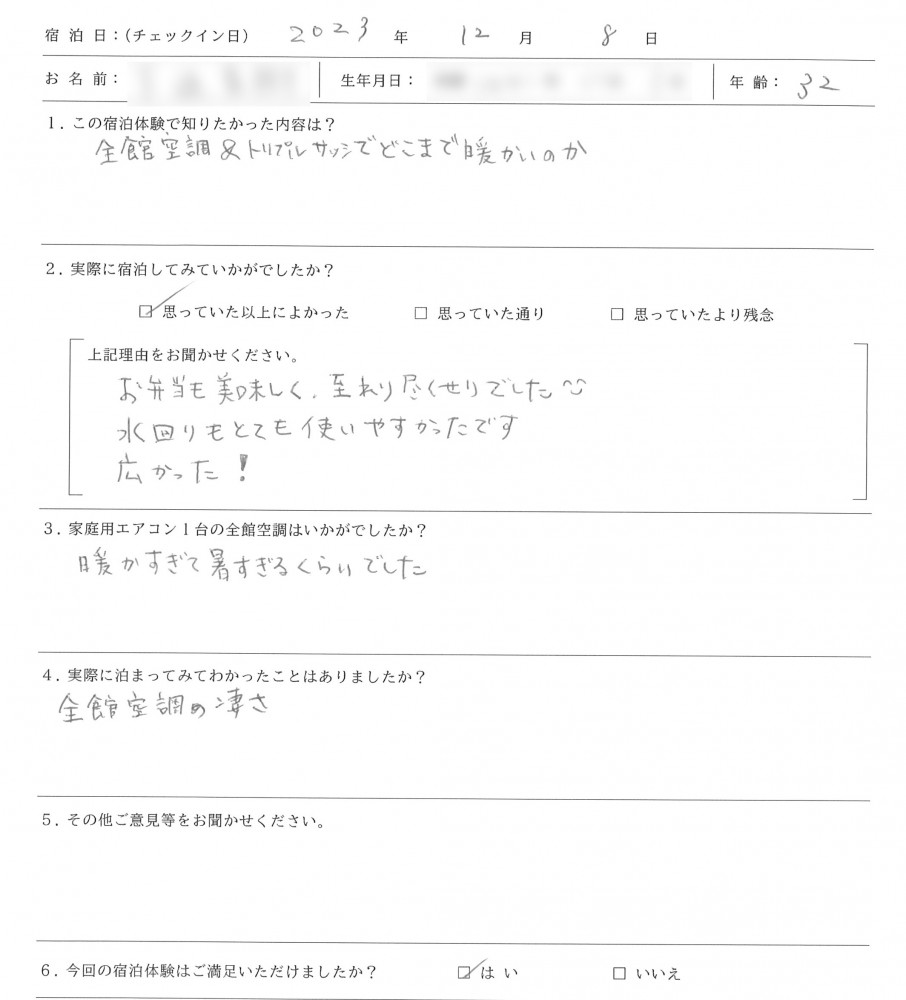 宿 泊 日：(チェックイン日) 2023 年 12 月 8 日
お 名 前： 生年月日： 年 齢： 32
1．この宿泊体験で知りたかった内容は？
全館空調＆トリプルサッシでどこまで暖かいのか
2．実際に宿泊してみていかがでしたか？
☑ 思っていた以上によかった □ 思っていた通り □ 思っていたより残念
上記理由をお聞かせください。
お弁当も美味しく、至れり尽くせりでした
水回りもとても使いやすかったです
広かった！
3．家庭用エアコン1台の全館空調はいかがでしたか？
暖かすぎて暑すぎるくらいでした
4．実際に泊まってみてわかったことはありましたか？
全館空調の凄さ
5．その他ご意見等をお聞かせください。
6．今回の宿泊体験はご満足いただけましたか？ ☑ はい □ いいえ